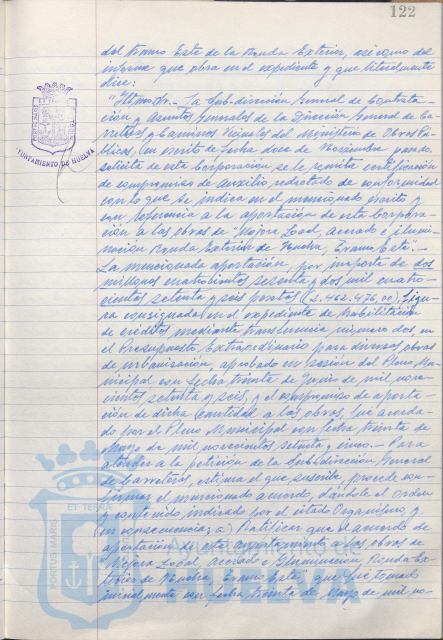 122
del Tramo Este de la Ronda Exterior, así como del
informe que obra en el expediente y que literalmente
dice:
"Iltmo. Sr.- La Sub-dirección General de Contrata-
ción y Asuntos Generales de la Dirección General de Ca-
rreteras y Caminos Vecinales del Ministerio de Obras Pú-
blicas, en escrito de fecha doce de Noviembre pasado
solicita de esta Corporación se le remita certificación
de compromiso de auxilio redactado de conformidad
con lo que se indica en el mencionado escrito y
con referencia a la aportación de esta Corpora-
ción a las obras de "Mejora Local, acerado e ilumi-
nación Ronda Exterior de Huelva, Tramo Este".-
La mencionada aportación, por importe de dos
millones cuatrocientas sesenta y dos mil cuatro-
cientas setenta y seis pesetas (2.462.476,00), figu-
ra consignada en el expediente de Habilitación
de créditos mediante transferencia número dos en
el Presupuesto Extraordinario para diversas obras
de urbanización, aprobado en sesión del Pleno Mu-
nicipal con fecha treinta de Junio de mil nove-
cientos setenta y seis, y el compromiso de aporta-
ción de dicha cantidad a las obras, fué acorda-
do por el Pleno Municipal con fecha treinta de
Mayo de mil novecientos setenta y cinco.- Para
atender a la petición de la Subdirección General
de Carreteras, estima el que suscribe, procede con-
firmar el mencionado acuerdo, dándole el orden
y contenido indicado por el citado Organismo, y
en consecuencia: a) Ratificar que el acuerdo de
aportación de este Ayuntamiento a las obras de
"Mejora Local, Acerado e Iluminación, Ronda Ex-
terior de Huelva, Tramo Este" que fué tomado
inicialmente con fecha treinta de Mayo de mil no-
AYUNTAMIENTO DE HUELVA
PORTUS MARIS
ET TERRÆ
Ayuntamiento de
HUELVA